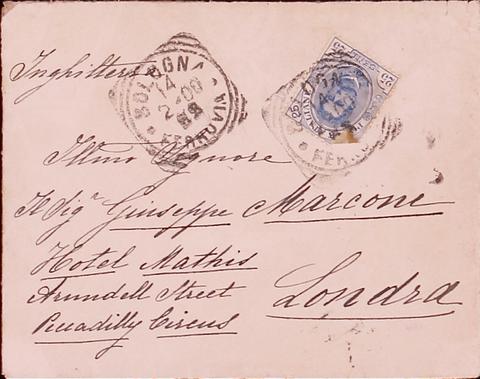 Inghilterra
BOLOGNA
FERROVIA
Illmo Signore
Il Sigr Giuseppe Marcone
Hotel Mathis
Arundell Street
Londra
Piccadilly Circus